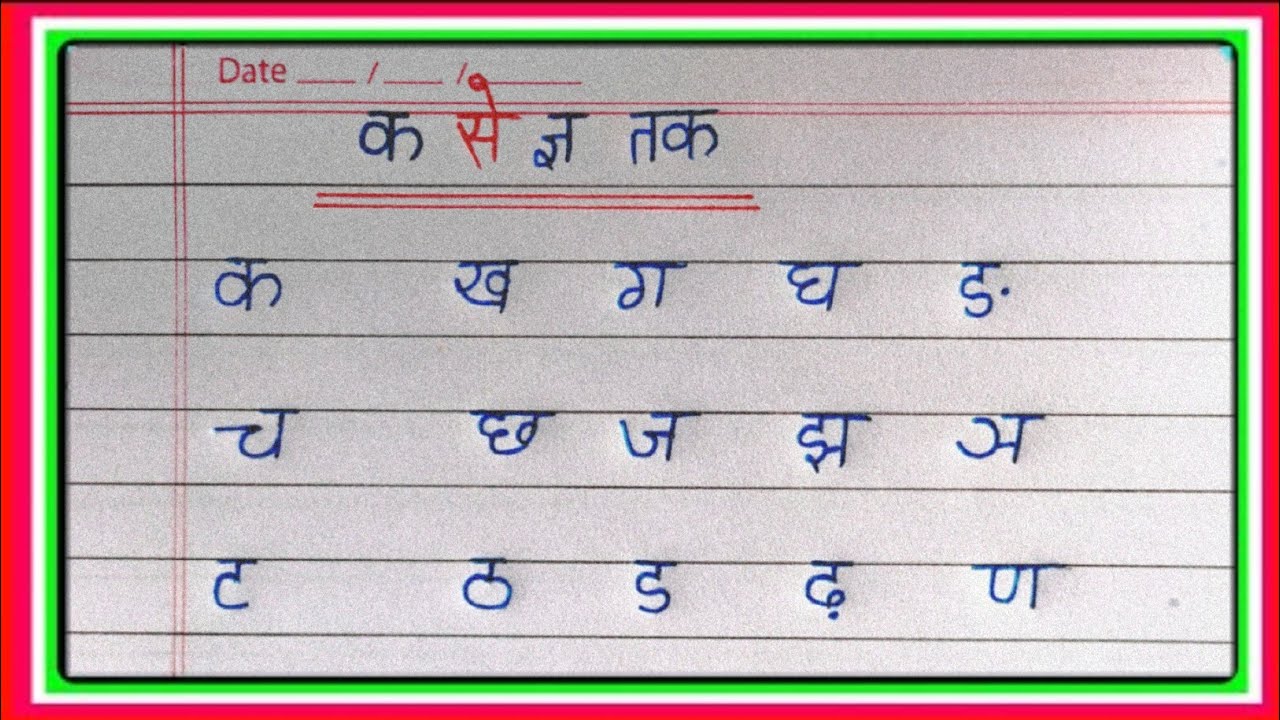 Date ___ /___ /_____
क से ज्ञ तक
क ख ग घ ङ
च छ ज झ ञ
ट ठ ड ढ़ ण